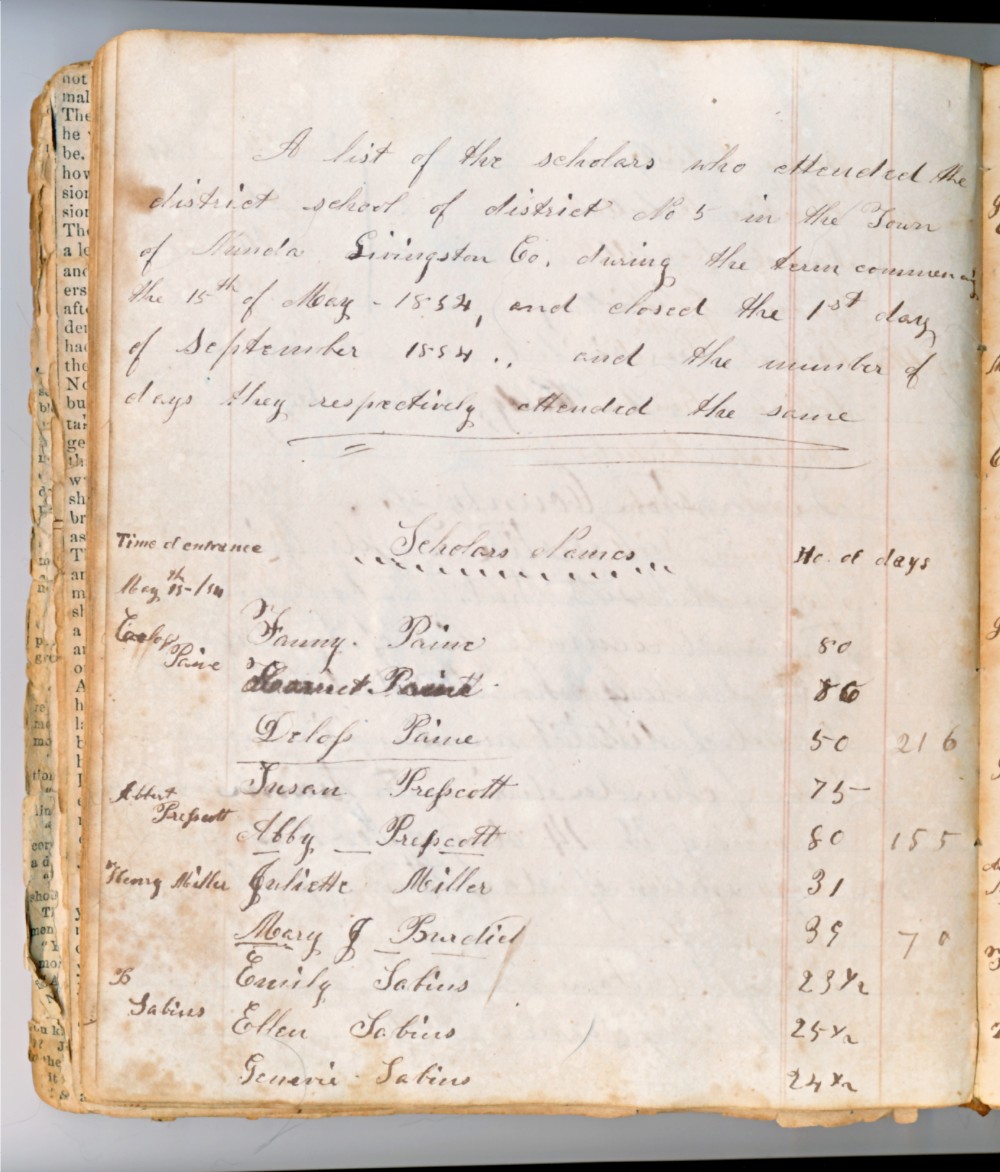 A list of the scholars who attended the
district school of district No 5 in the Town
of Nunda Livingston Co. during the term commencing
the 15th of May - 1854, and closed the 1st day
of September 1854 ., and the number of
days they respectively attended the same
Time of entrance Scholars Names No. of days
May 15th -/54
Fanny. Paine 80
Paine
Paine 86
Deloss Paine 50 216
Susan Presscott 75
Albert
Presscott
Abby Presscott 80 155
Henry Miller Juliette Miller 31
Mary J Burdict 39 70
Emily Sabins 23 ½
Sabins
Ellen Sabins 25 ½
Generie Sabins 24 ½
not
mal
The
he
be.
how
sion
sion
The
a le
and
ers
afte
der
had
the
No
bu
tai
ge
th
w
sh
br
as
T